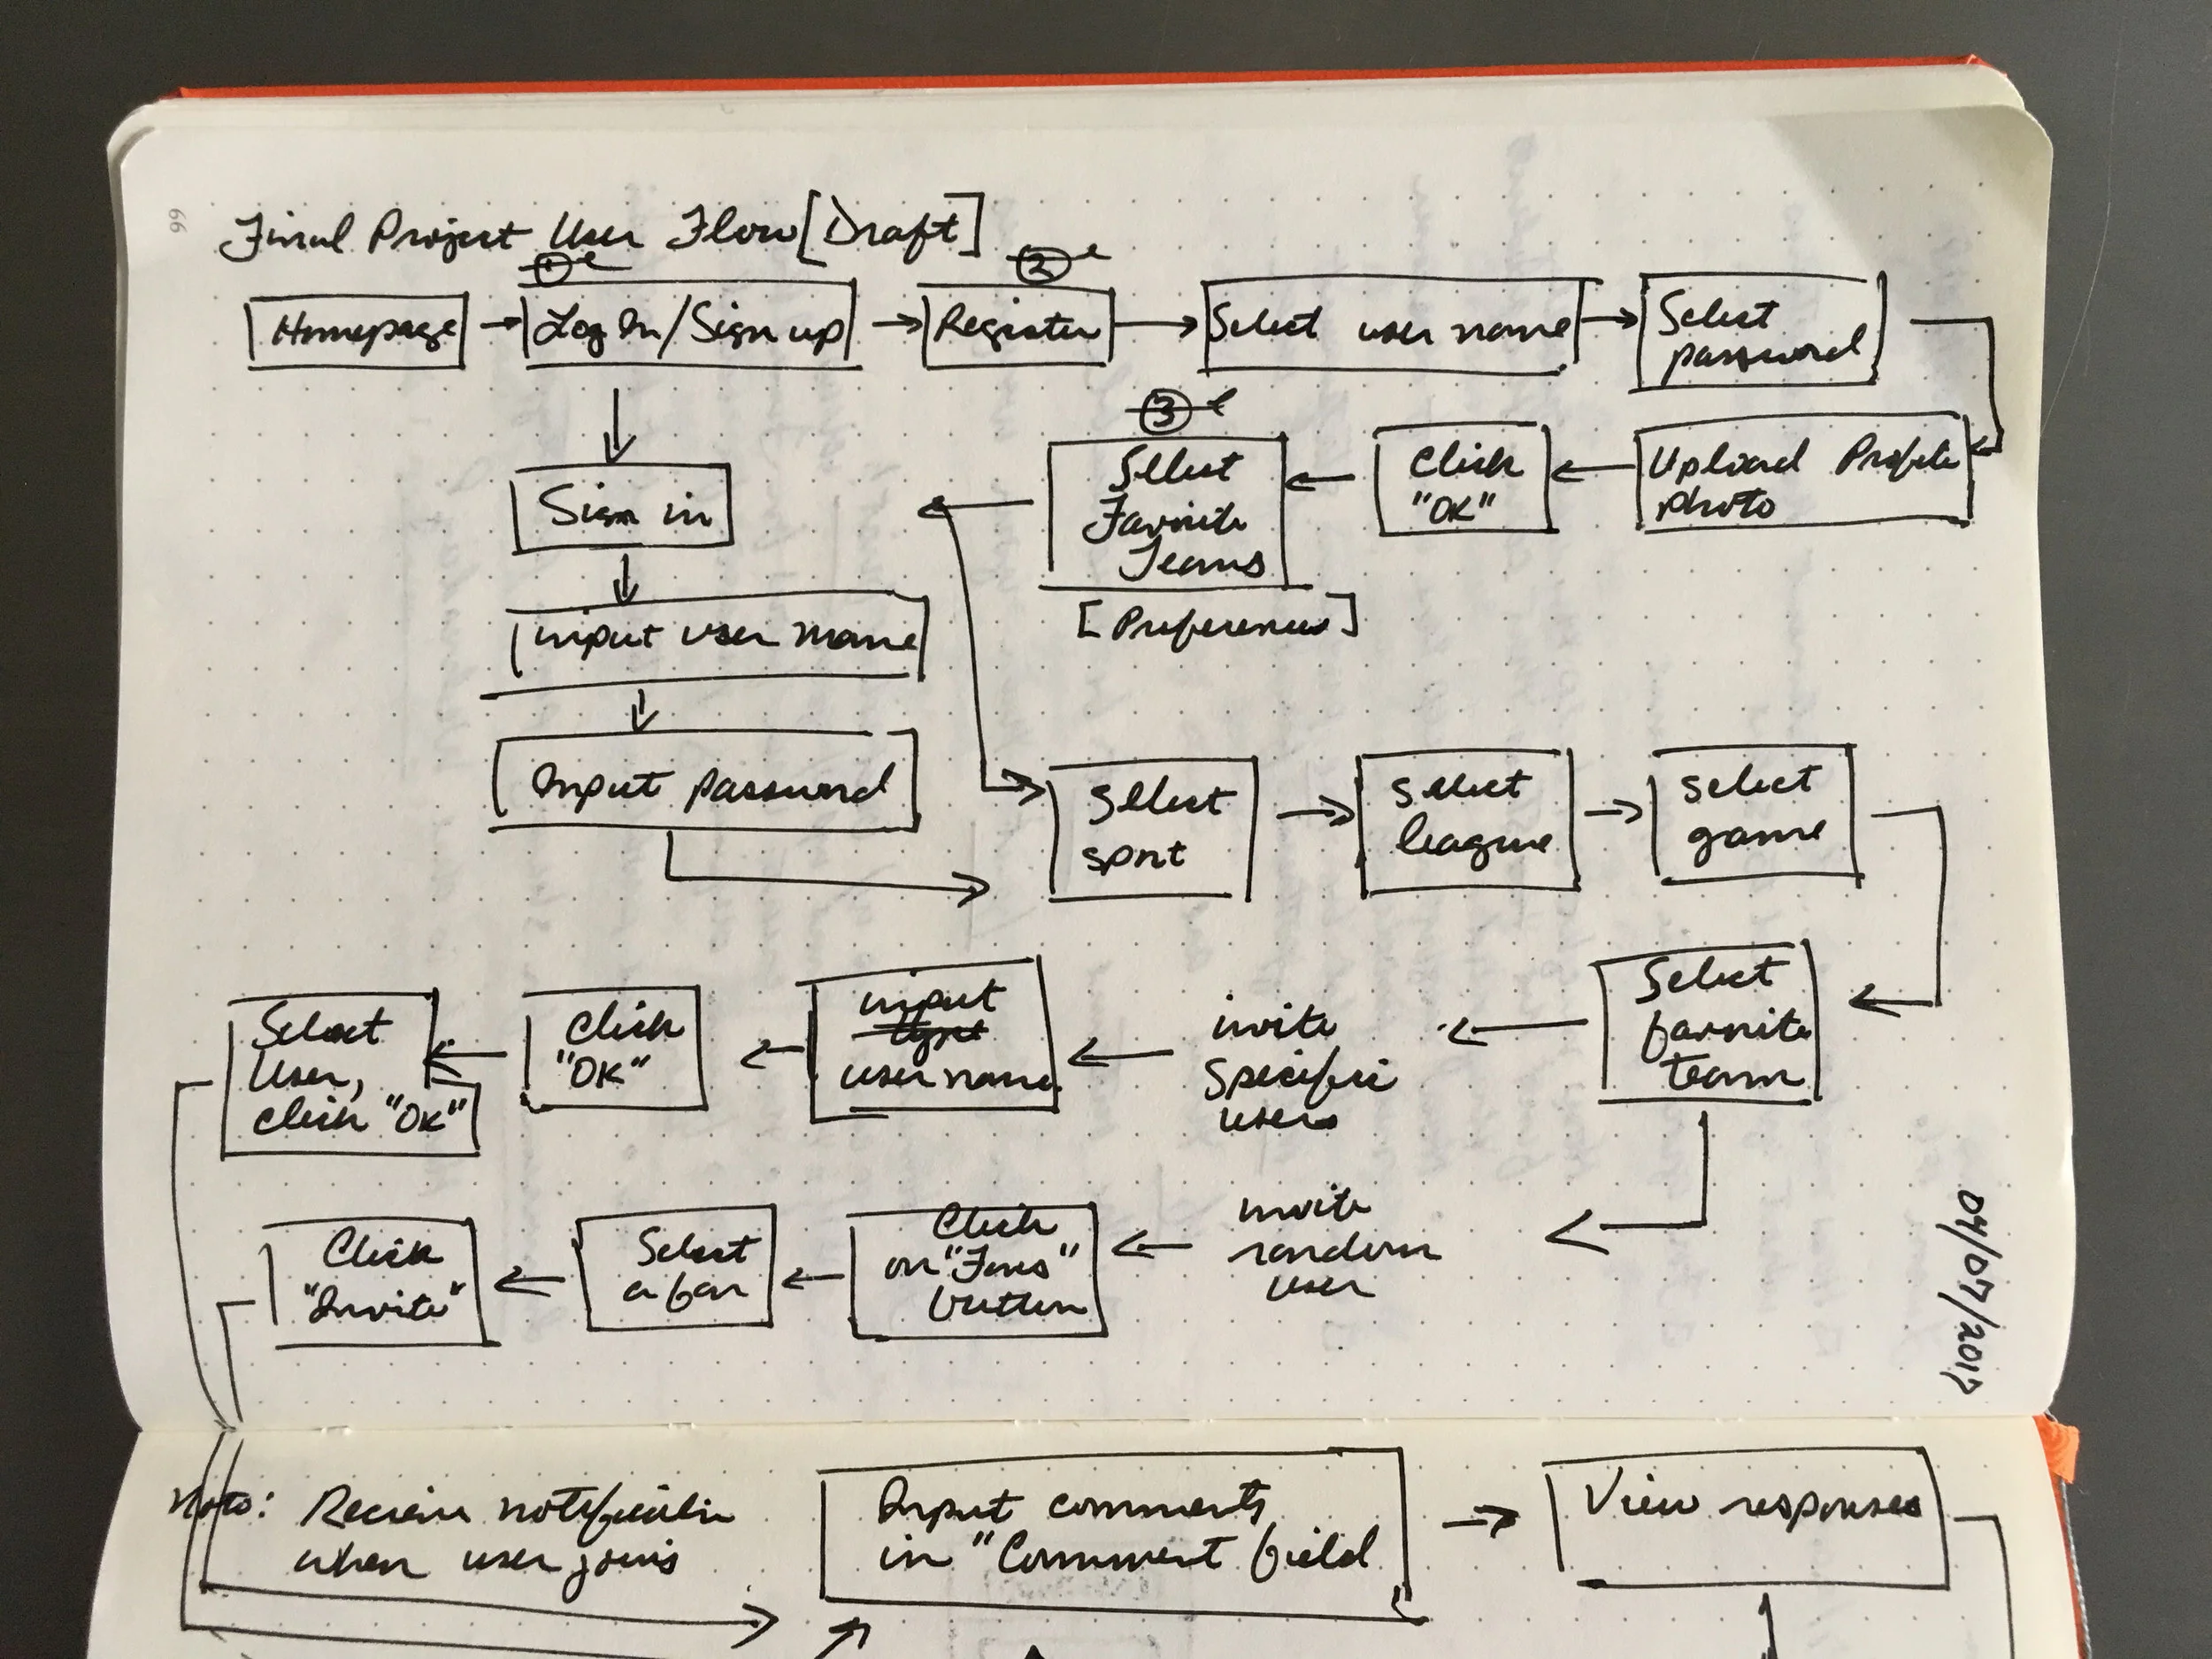 99
Final Project User Flow [Draft]
1
2
Homepage
Log In/Sign up
Register
Select user name
Select
password
3
Select
Favorite
Teams
[Preferences]
Click
"OK"
Upload Profile
photo
Sign in
input user name
Input password
Select
sport
Select
league
Select
game
Select
User,
click "OK"
Click
"OK"
input
user name
invite
specific
users
Select
favorite
team
Click
"Invite"
Select
a fan
Click
on "Fans"
button
invite
random
user
04/07/2017
Note: Receive notification
when user joins
Input comments
in "Comment field
View responses